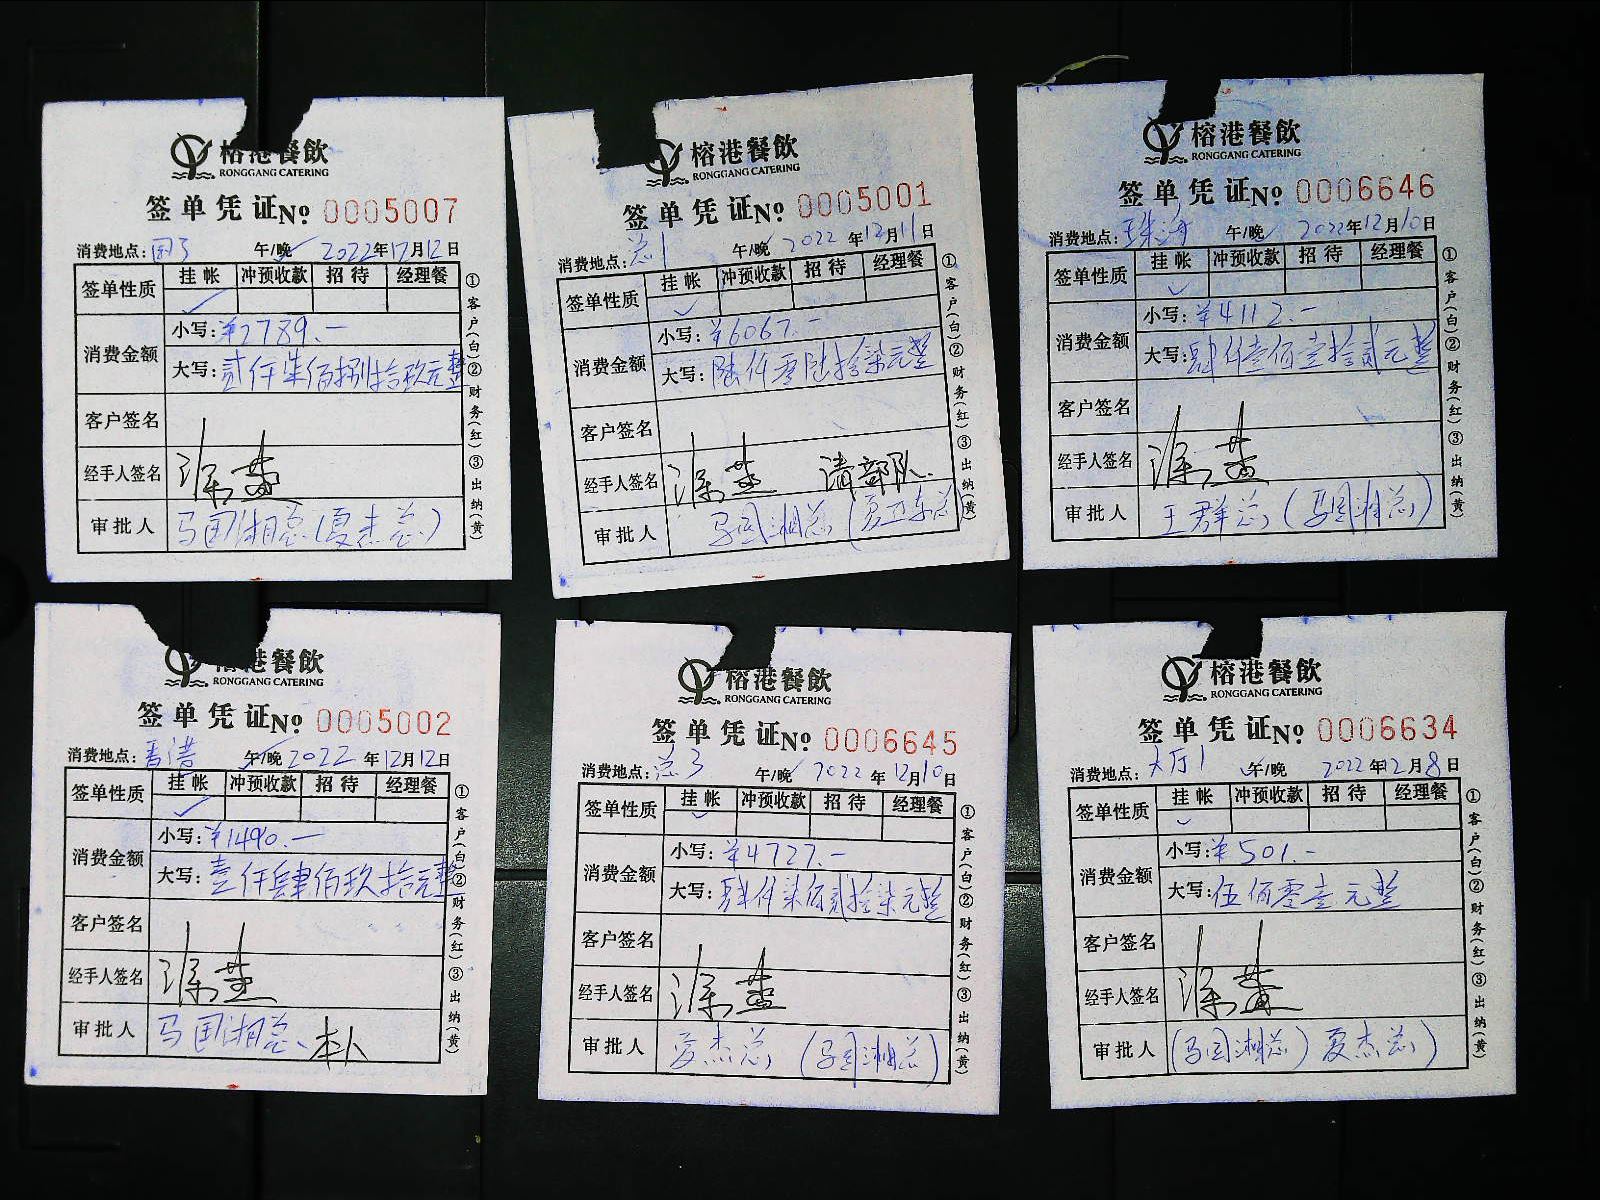 榕港餐飲
RONGGANG CATERING
签单凭证№ 0005007
消费地点: 午/晚 2022年12月12日
签单性质 挂帐 冲预收款 招待 经理餐
消费金额 小写:¥2789.一
大写:贰仟柒佰捌拾玖元整
客户签名
经手人签名
审批人 马国湘总(夏杰总)
①客户(白)②财务(红)③出纳(黄)
榕港餐飲
RONGGANG CATERING
签单凭证№ 0005001
消费地点:总1 午/晚 2022年12月11日
签单性质 挂帐 冲预收款 招待 经理餐
消费金额 小写:¥6067.一
大写:陆仟零陆拾柒元整
客户签名
经手人签名 请部队.
审批人 马国湘总
①客户(白)②财务(红)③出纳(黄)
榕港餐飲
RONGGANG CATERING
签单凭证№ 0006646
消费地点:珠海 午/晚 2022年12月10日
签单性质 挂帐 冲预收款 招待 经理餐
消费金额 小写:¥4112.一
大写:肆仟壹佰壹拾贰元整
客户签名
经手人签名
审批人 王群总(马国湘总)
①客户(白)②财务(红)③出纳(黄)
榕港餐飲
RONGGANG CATERING
签单凭证№ 0005002
消费地点:香港 午/晚 2022年12月12日
签单性质 挂帐 冲预收款 招待 经理餐
消费金额 小写:¥1490.一
大写:壹仟肆佰玖拾元整
客户签名
经手人签名
审批人 马国湘总
①客户(白)②财务(红)③出纳(黄)
榕港餐飲
RONGGANG CATERING
签单凭证№ 0006645
消费地点:总3 午/晚 2022年12月10日
签单性质 挂帐 冲预收款 招待 经理餐
消费金额 小写:¥4727.一
大写:肆仟柒佰贰拾柒元整
客户签名
经手人签名
审批人 夏杰总(马国湘总)
①客户(白)②财务(红)③出纳(黄)
榕港餐飲
RONGGANG CATERING
签单凭证№ 0006634
消费地点:大厅1 午/晚 2022年12月8日
签单性质 挂帐 冲预收款 招待 经理餐
消费金额 小写:¥501.一
大写:伍佰零壹元整
客户签名
经手人签名
审批人 (马国湘总)夏杰总)
①客户(白)②财务(红)③出纳(黄)